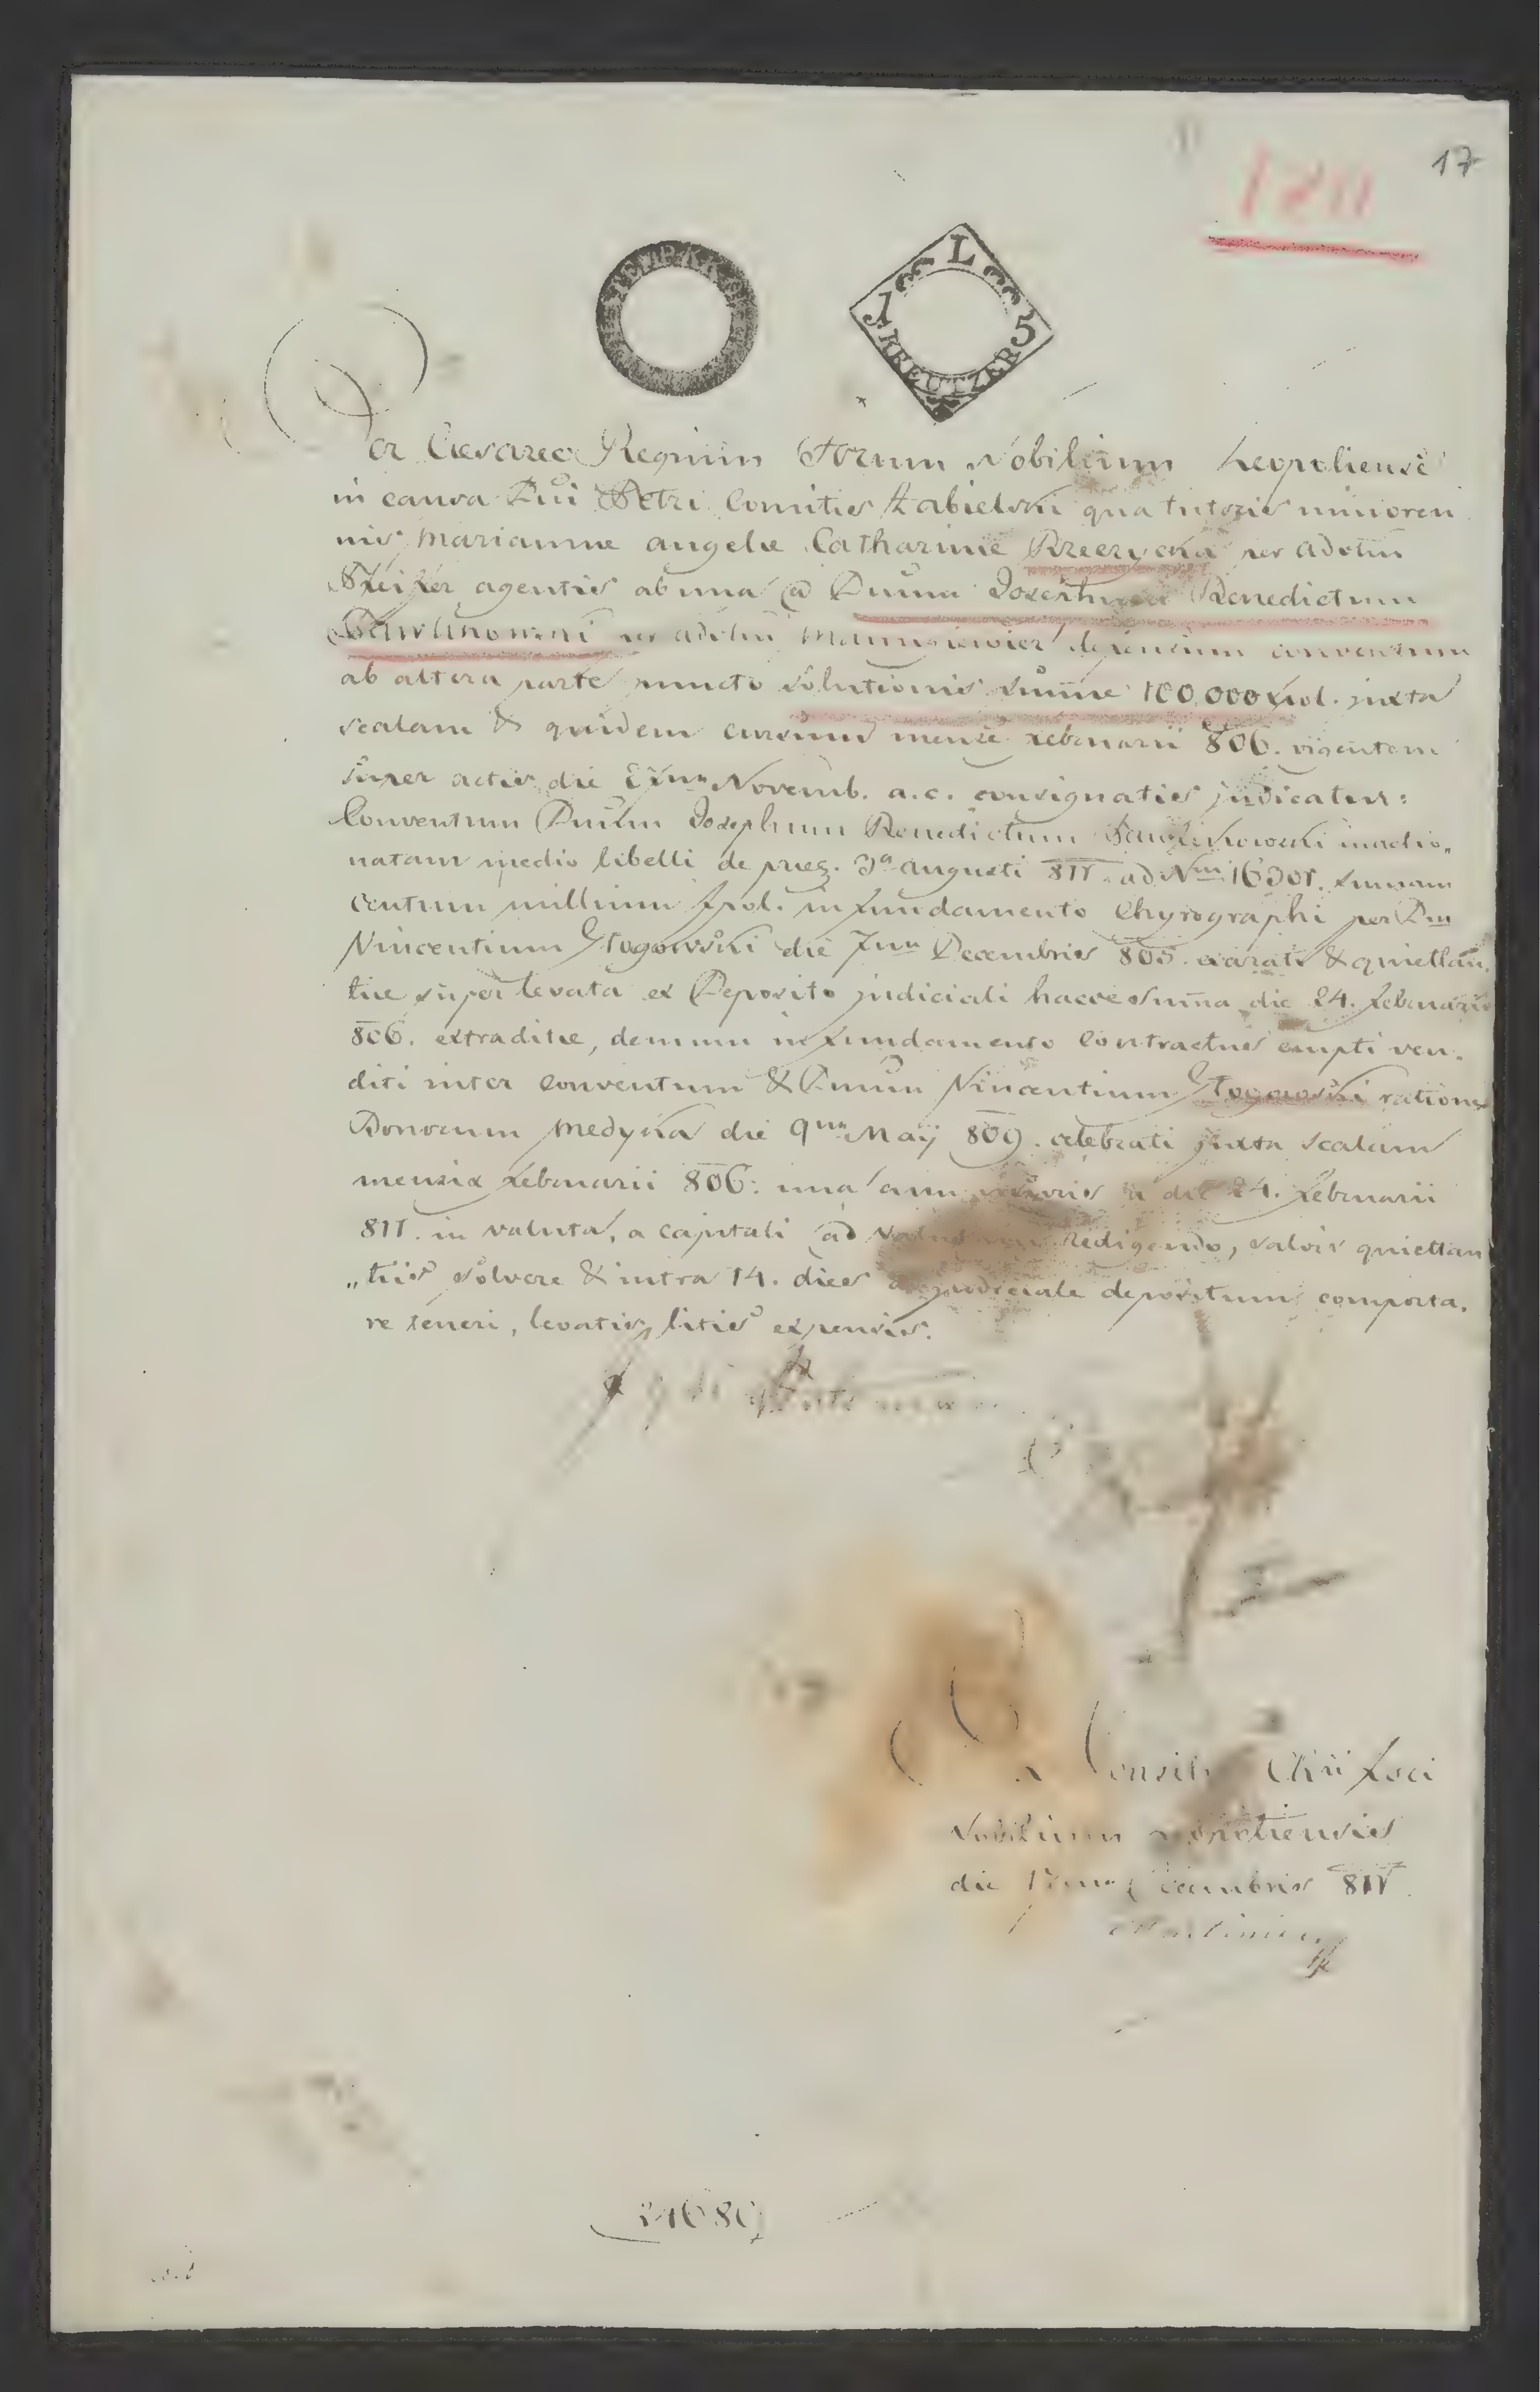 17
1811
STEMP. K.K.
L
15
KREUTZER
Per Caesareo Regium Forum Nobilium Leopoliense
in causa Dni Petri Comitis Łabielski qua tutoris minoren
nis Marianne Angele Catharine per adotum
agentis ab una @ Dnum Josephum Benedictum
Pawlikowski per adotum defensum conventum
ab altera parte puncto solutionis summe 100,000 fpol. juxta
scalam & quidem cursum mense Februarii 806. vigentem
super actis die Novemb. a.c. consignatis judicatur:
Conventum Dnum Josephum Benedictum Pawlikowski inactio„
natam medio libelli de praes. 3a Augusti 811. ad Nrm summam
centum millium fpol. in fundamento Chyrographi per Dm
Vincentium Głogowski die 7ma Decembris 805. exarati & quiettan.
tiae super levata ex Deposito judiciali hacce summa die 24. Februarii
806. extraditae, demum in fundamento Contractus empti ven.
diti inter conventum & Dnum Vincentium Głogowski ratione
Bonorum Medyka die 9na Maÿ 809. celebrati juxta scalam
mensis Februarii 806: una cum a die 24. Februarii
811. in valuta, a capitali ad redigendo, salvis quiettan
„tiis solvere & intra 14. dies ad judiciale depositum comporta.
re teneri, levatis litis expensis.
Consilio Fori
Nobilium Leopoliensis
die Decembris 811.